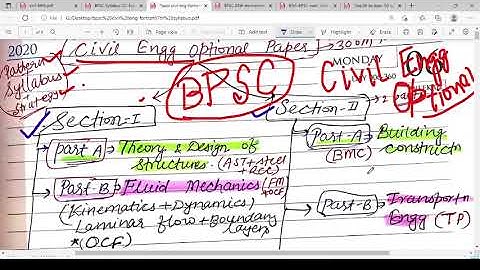 2020
Civil Engg optional Paper 300m
Pattern
Syllabus
+
Strategy
MONDAY
BPSC
Civil Engg
Optional
Section-I
Section-II
Part A → Theory & Design of
Structures. (AST+steel
+RCC)
Part-B → Fluid Mechanics (FM
+OCF)
(Kinematics + Dynamics)
Laminar flow + Boundary
layers
*(OCF)
Part-A → Building
(BMC) constructn
Part-B → Transportn
Engg (TP)